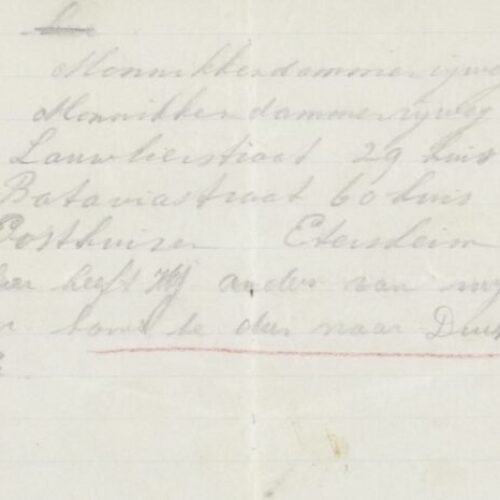 Monnikkendammerrijweg
Monnikkendammerrijweg
Laurierstraat 29 huis
Bataviastraat 60 huis
Oosthuizen Etersheim
heeft Hij ander van my
te doen naar